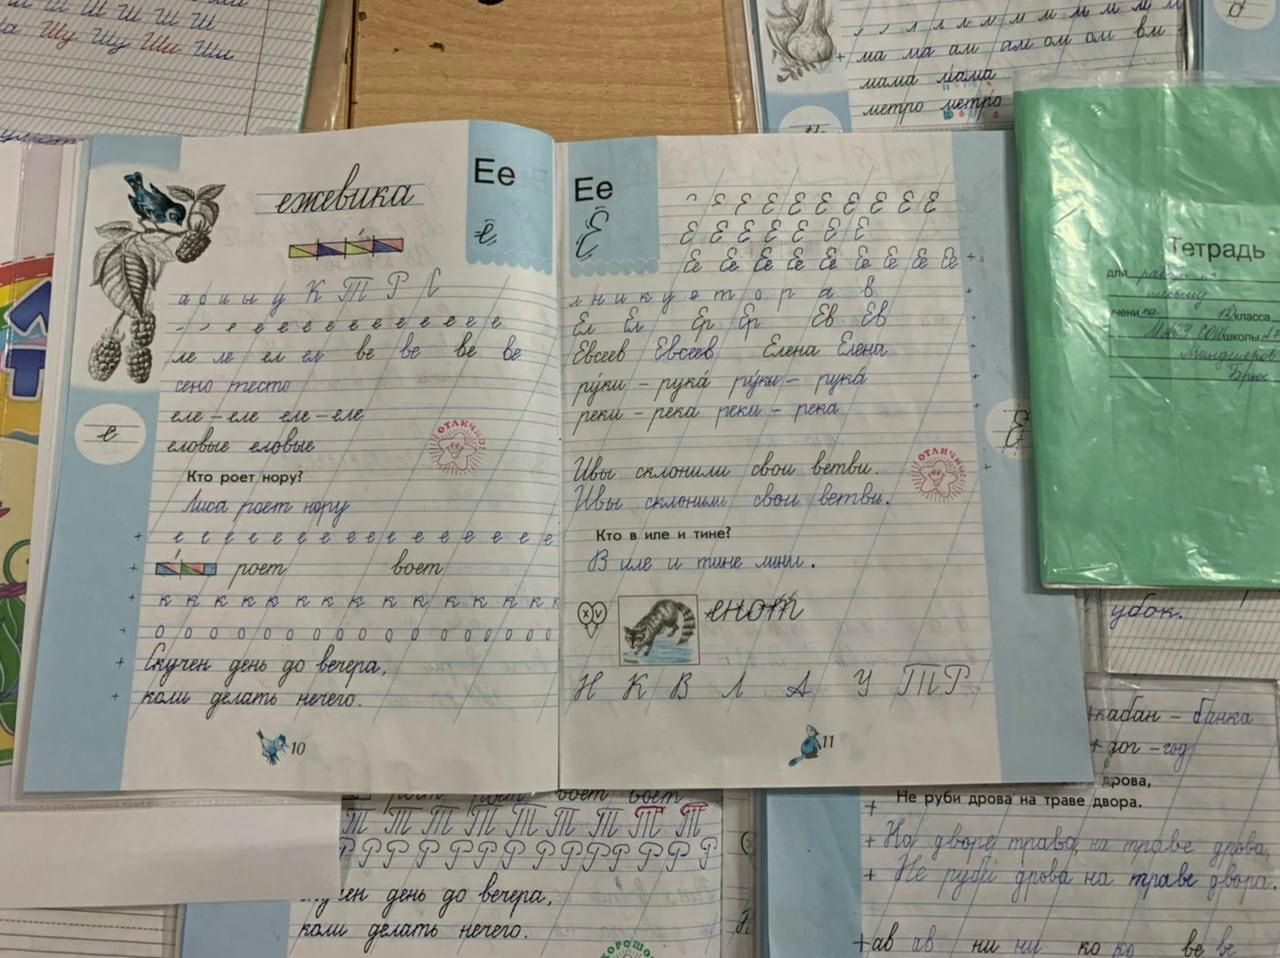 Ш Ш Ш Ш Ш
а Шу Шу Ши Ши
ма ма ам ам ом ом вм
мама мама
метро метро
Ее
ежевика
е
а о и ы у К Т Р С
е е е е е е е е е е е
ле ле ел ел ве ве ве ве
сено тесто
еле – еле еле – еле
еловые еловые
ОТЛИЧНО!
е
Кто роет нору?
Лиса роет нору
е е е е е е е е е е е е е е е е
роет воет
к к к к к к к к к к к к к к
о о о о о о о о о о о о о о о
Скучен день до вечера,
коли делать нечего.
10
Ее
Е
Е Е Е Е Е Е Е Е
Е Е Е Е Е Е Е
Ее Ее Ее Ее Ее Ее Ее Ее Ее
л н и к у е т о р а в
Ел Ел Ер Ер Ев Ев
Евсеев Евсеев Елена Елена
ру́ки – рука́ ру́ки – рука́
реки – река реки – река
Ивы склонили свои ветви.
Ивы склонили свои ветви.
ОТЛИЧНО!
Кто в иле и тине?
В иле и тине лини.
X V
енот
Н К В Л А У Т Р
11
Тетрадь
для работ по
письму
учени ка класса
школы
убок.
кабан – банка
год
дрова,
Не руби дрова на траве двора.
На дворе трава, на траве дрова,
Не руби дрова на траве двора.
ав ав ни ни ко ко ве ве
роет роет воет воет
Т Т Т Т Т Т Т Т Т
Р Р Р Р Р Р Р Р Р Р Р Р Р
учен день до вечера,
коли делать нечего.
ХОРОШО